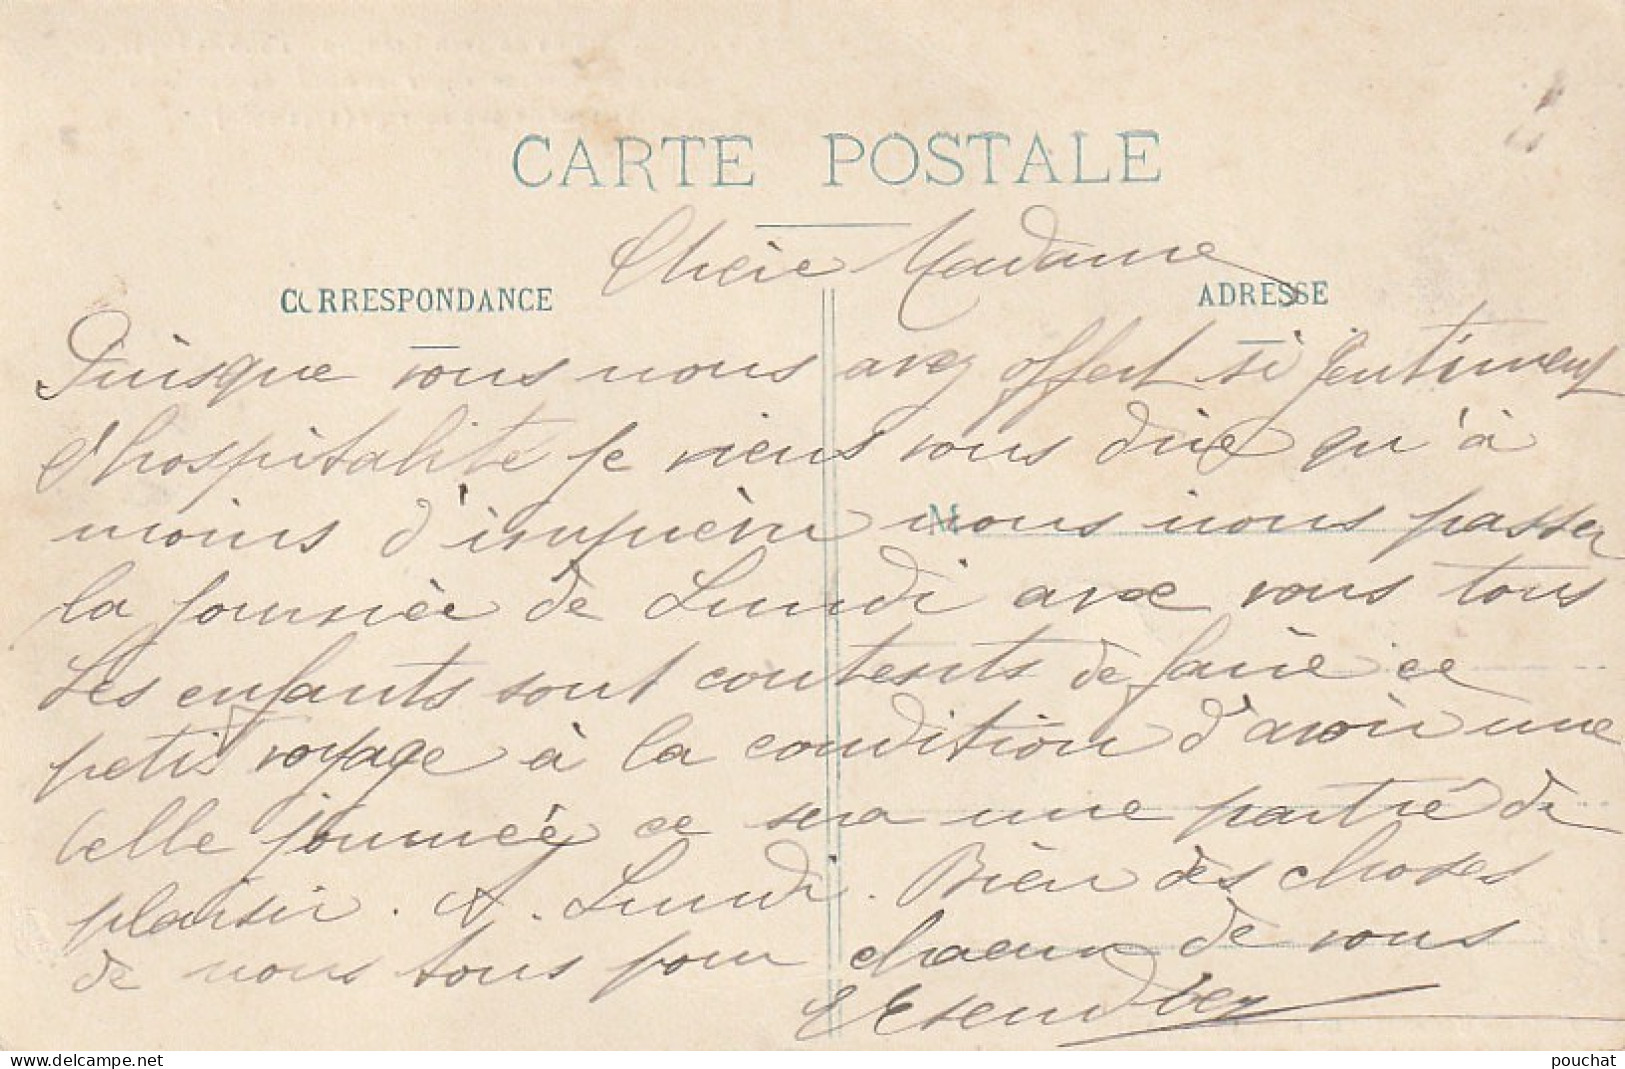 CARTE POSTALE
Chère Madame
CORRESPONDANCE
ADRESSE
Puisque vous nous avez offert si gentiment
l'hospitalité je viens vous dire qu'à
moins d'imprèvu nous irons passer
M
la journèe de Lundi avec vous tous
Les enfants sont contents de faire ce
petit voyage à la condition d'avoir une
belle journèe ce sera une partie de
plaisir. A. Lundi. Bien des choses
de nous tous pour chacun de vous
www.delcampe.net
pouchat